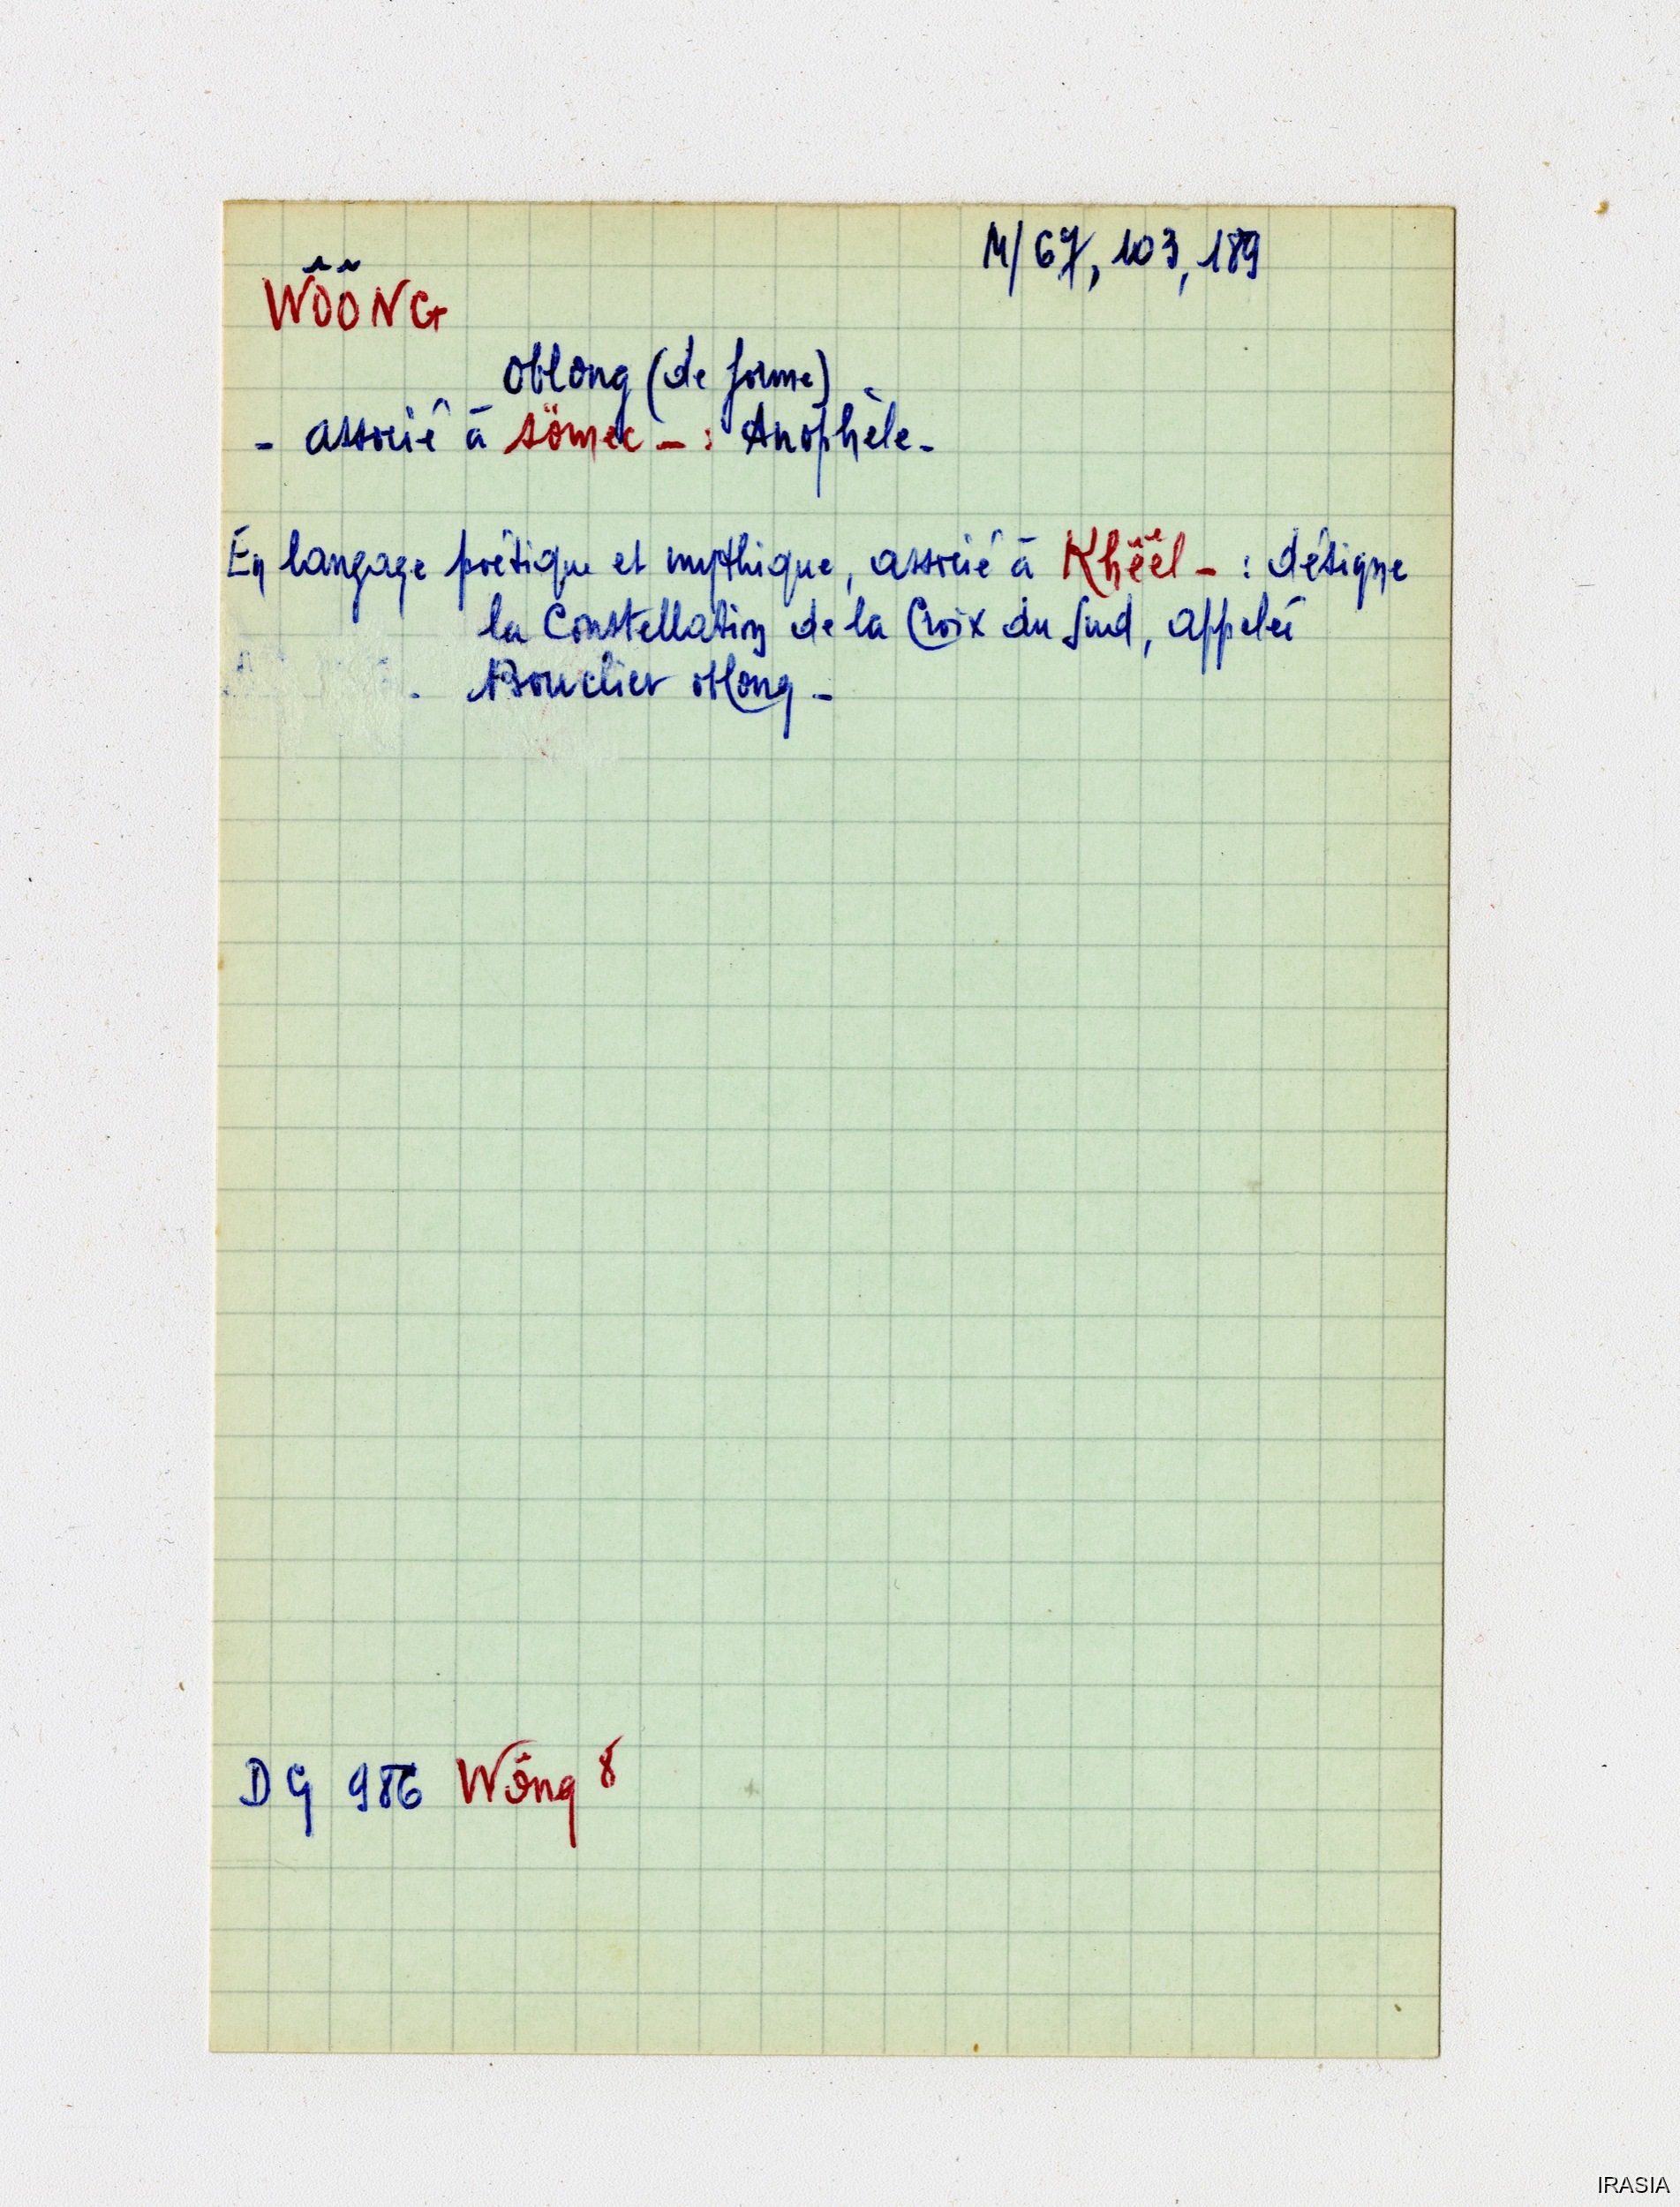 M/67, 103, 189
WÔÔNG
oblong (de forme).
- associé à sömec - : Anophèle -
En langage poétique et mythique, associé à Khëël - : désigne
la Constellation de la Croix du Sud, appelée
Bouclier oblong -
DG 986 Wông 8
IRASIA